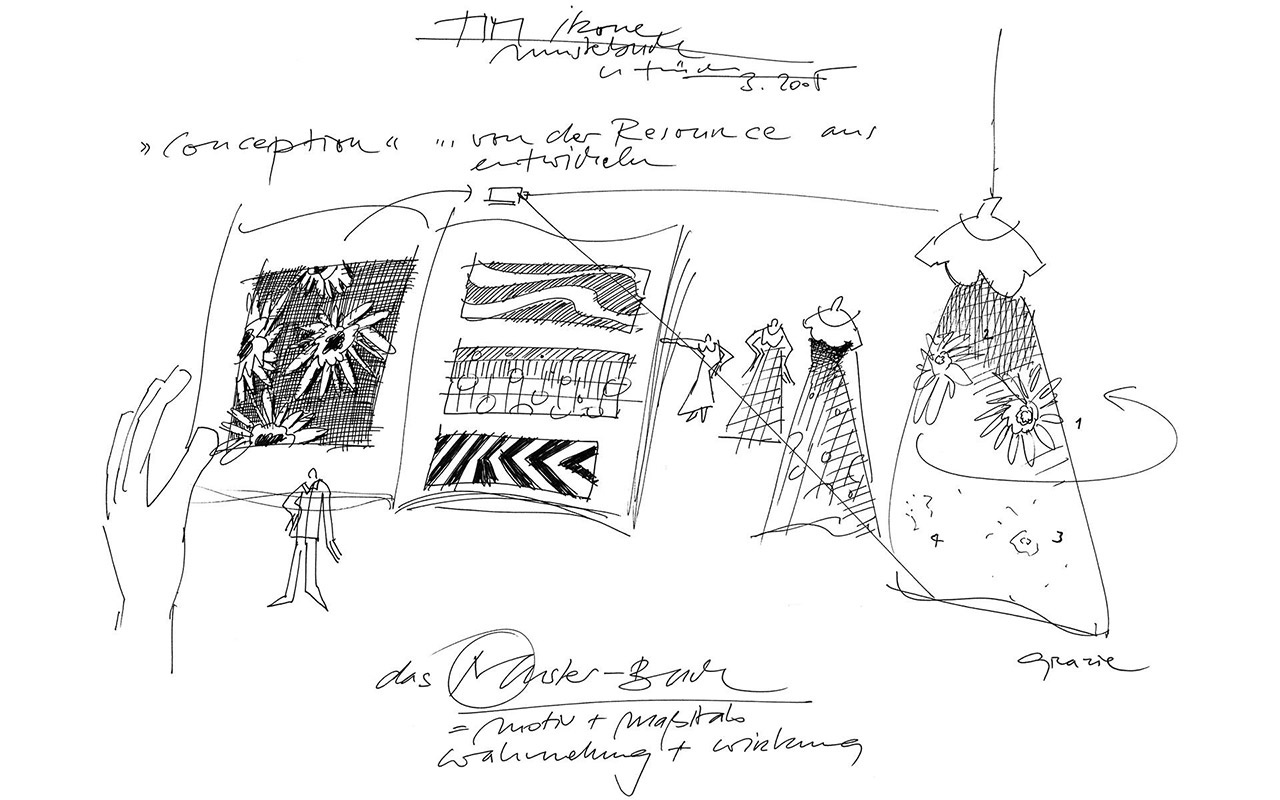 TIM ikone
musterbuch
3. 2008
»Conception« ... von der Resource aus
entwickeln
2
1
4
3
Grazie
das Muster-Buch
= motiv + maßstab
wahrnehmung + wirkung